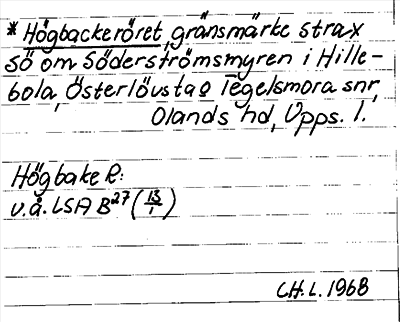 * Högbackeröret, gränsmärke strax
sö om Söderströmsmyren i Hille-
bola, Österlövsta o Tegelsmora snr,
Olands hd, Upps. l.
Högbake R:
u.å. LSA B27 (13/1)
CH. L. 1968